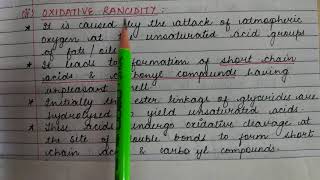 (i) OXIDATIVE RANCIDITY:
* It is caused by the attack of atmospheric
oxygen at unsaturated acid groups
of fats/oils
* It leads to formation of short chain
acids & carbonyl compounds having
unpleasant smell
* Initially the ester linkage of glycerides are
hydrolysed to yield unsaturated acids.
* These acids undergo oxidative cleavage at
the site of double bonds to form short
chain acids & carbonyl compounds.